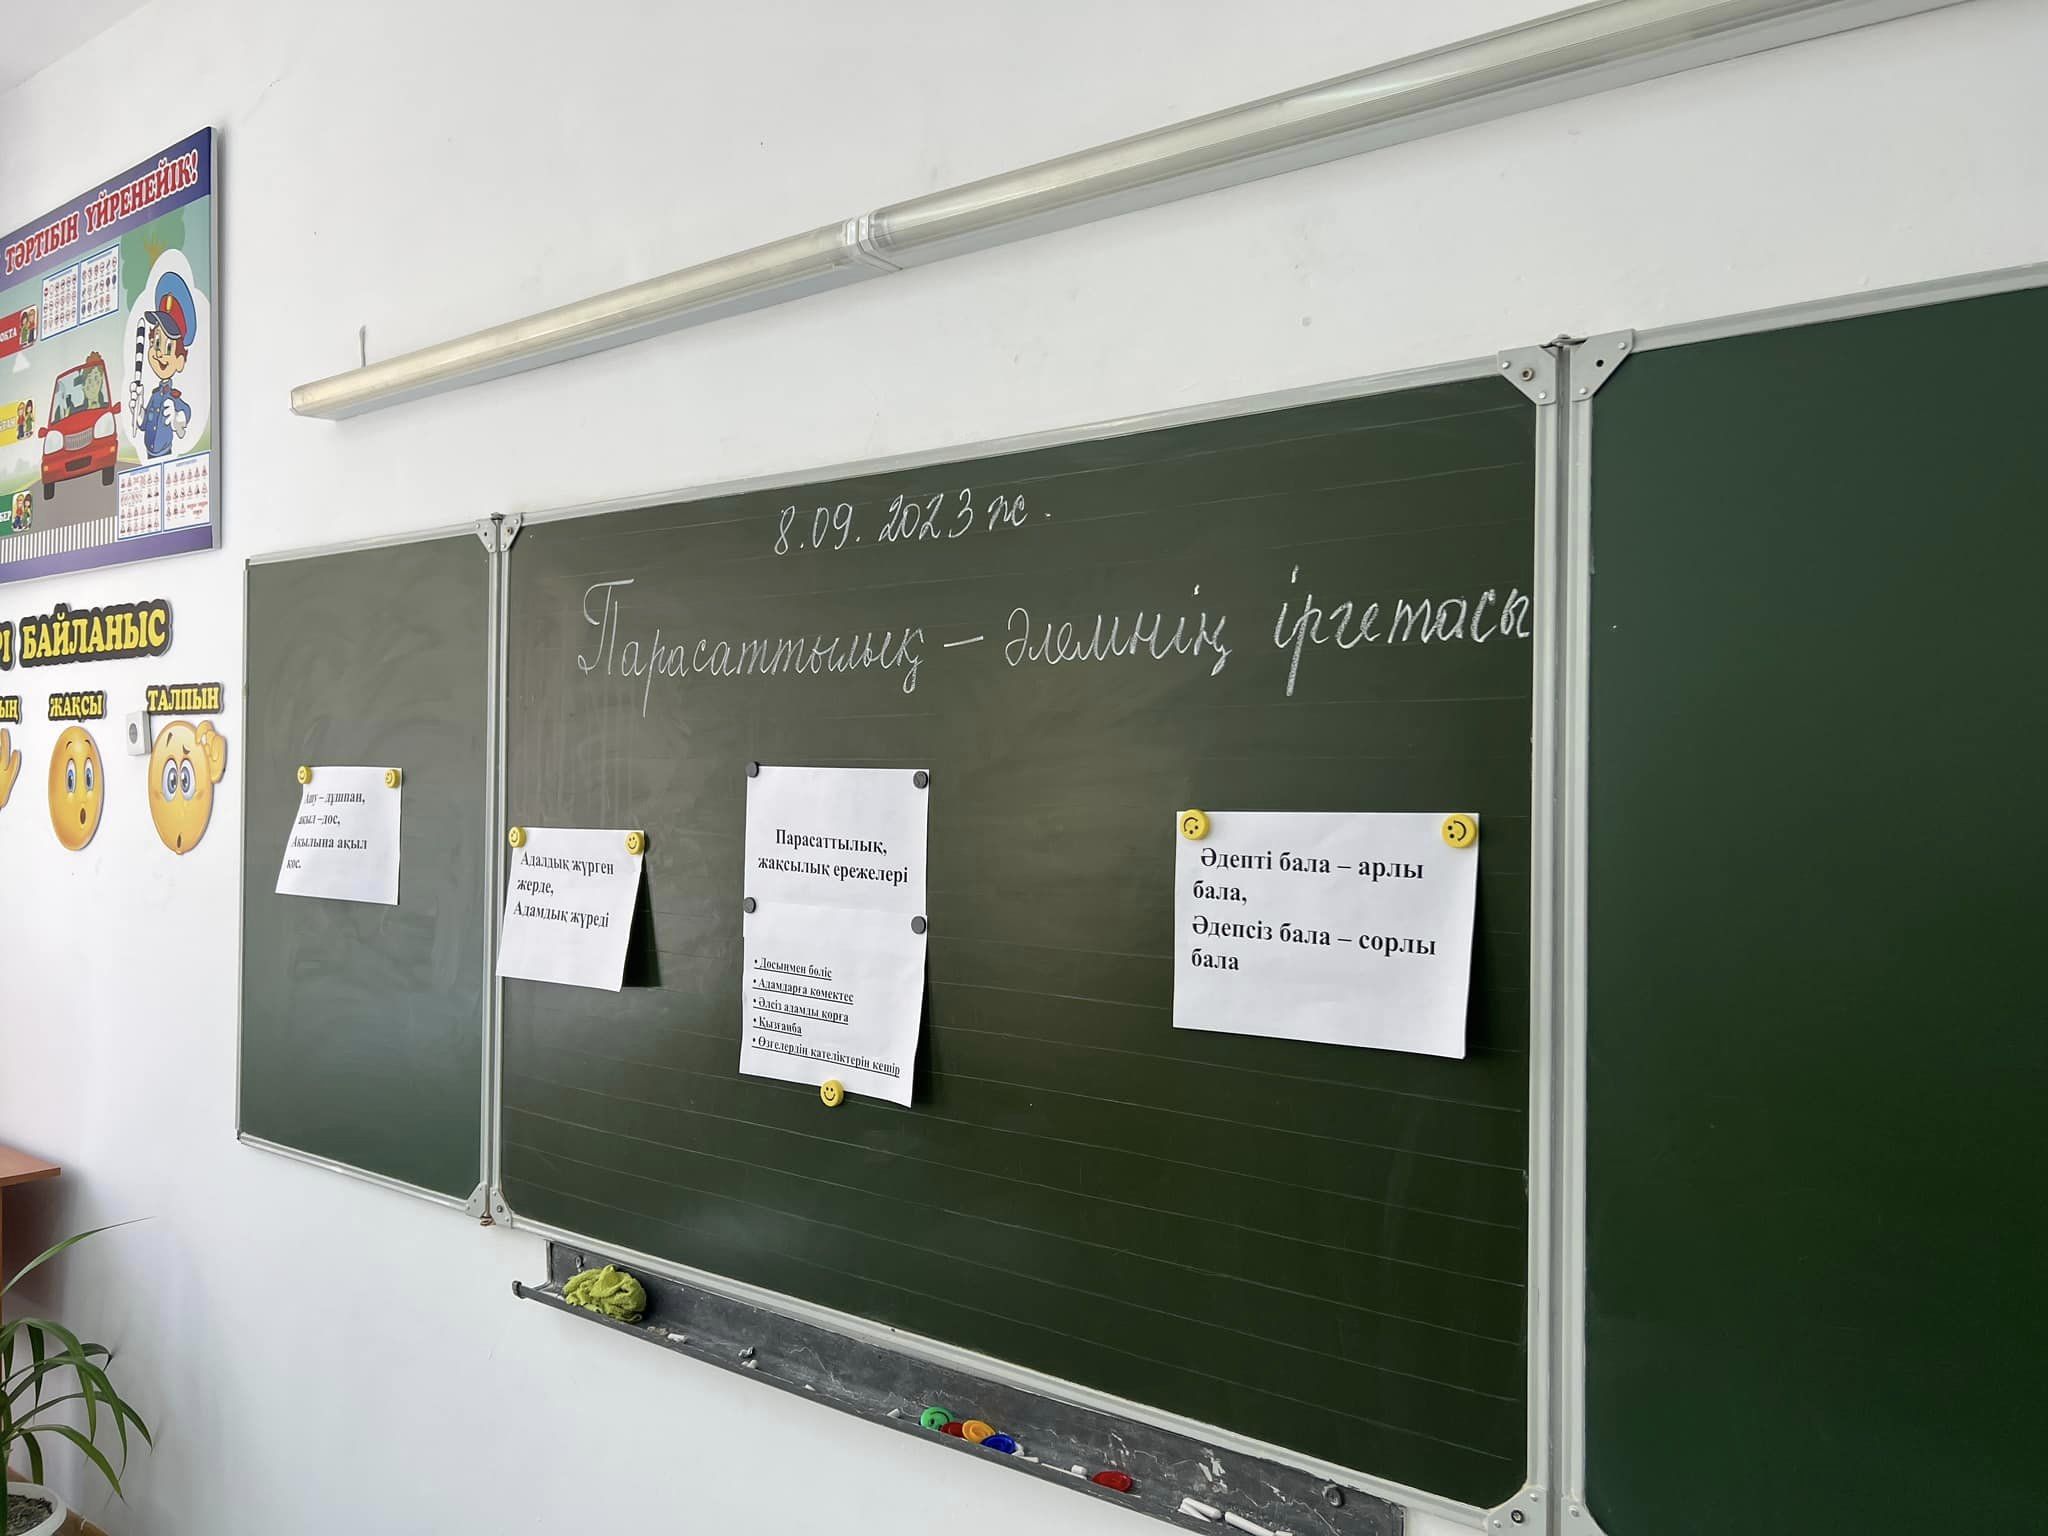 ТӘРТІБІН ҮЙРЕНЕЙІК!
РІ БАЙЛАНЫС
ЖАҚСЫ
ТАЛПЫН
8.09.2023 ж.
Парасаттылық – әлемнің іргетасы
Ашу – дұшпан,
ақыл –дос,
Ақылына ақыл
қос.
Адалдық жүрген
жерде,
Адамдық жүреді
Парасаттылық,
жақсылық ережелері
• Досыңмен бөліс
• Адамдарға көмектес
• Әлсіз адамды қорға
• Қызғанба
• Өзгелердің қателіктерін кешір
Әдепті бала – арлы
бала,
Әдепсіз бала – сорлы
бала